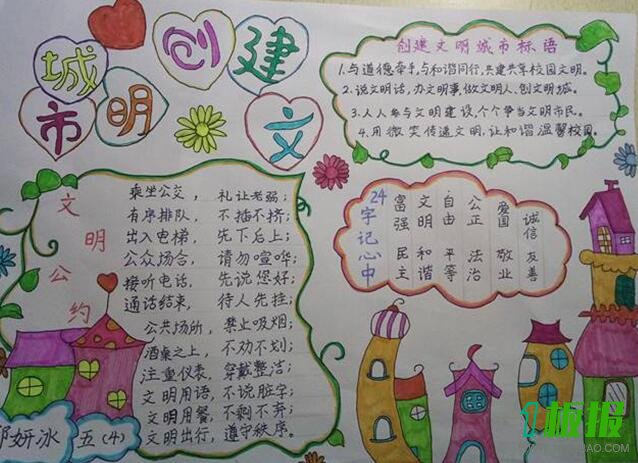 创建文
明城市
创建文明城市标语
1.与道德牵手,与和谐同行,共建共享校园文明。
2.说文明话,办文明事,做文明人、创文明城。
3.人人参与文明建设,个个争当文明市民。
4.用微笑传递文明,让和谐温馨校园。
文明公约
乘坐公交,礼让老弱;
有序排队,不插不挤;
出入电梯,先下后上;
公众场合,请勿喧哗;
接听电话,先说您好;
通话结束,待人先挂;
公共场所,禁止吸烟;
酒桌之上,不劝不划;
注重仪表,穿戴整洁;
文明用语,不说脏字;
文明用餐,不剩不弃;
文明出行,遵守秩序。
24字记心中
富强 民主
文明 和谐
自由 平等
公正 法治
爱国 敬业
诚信 友善
妍冰 五(4)
板报